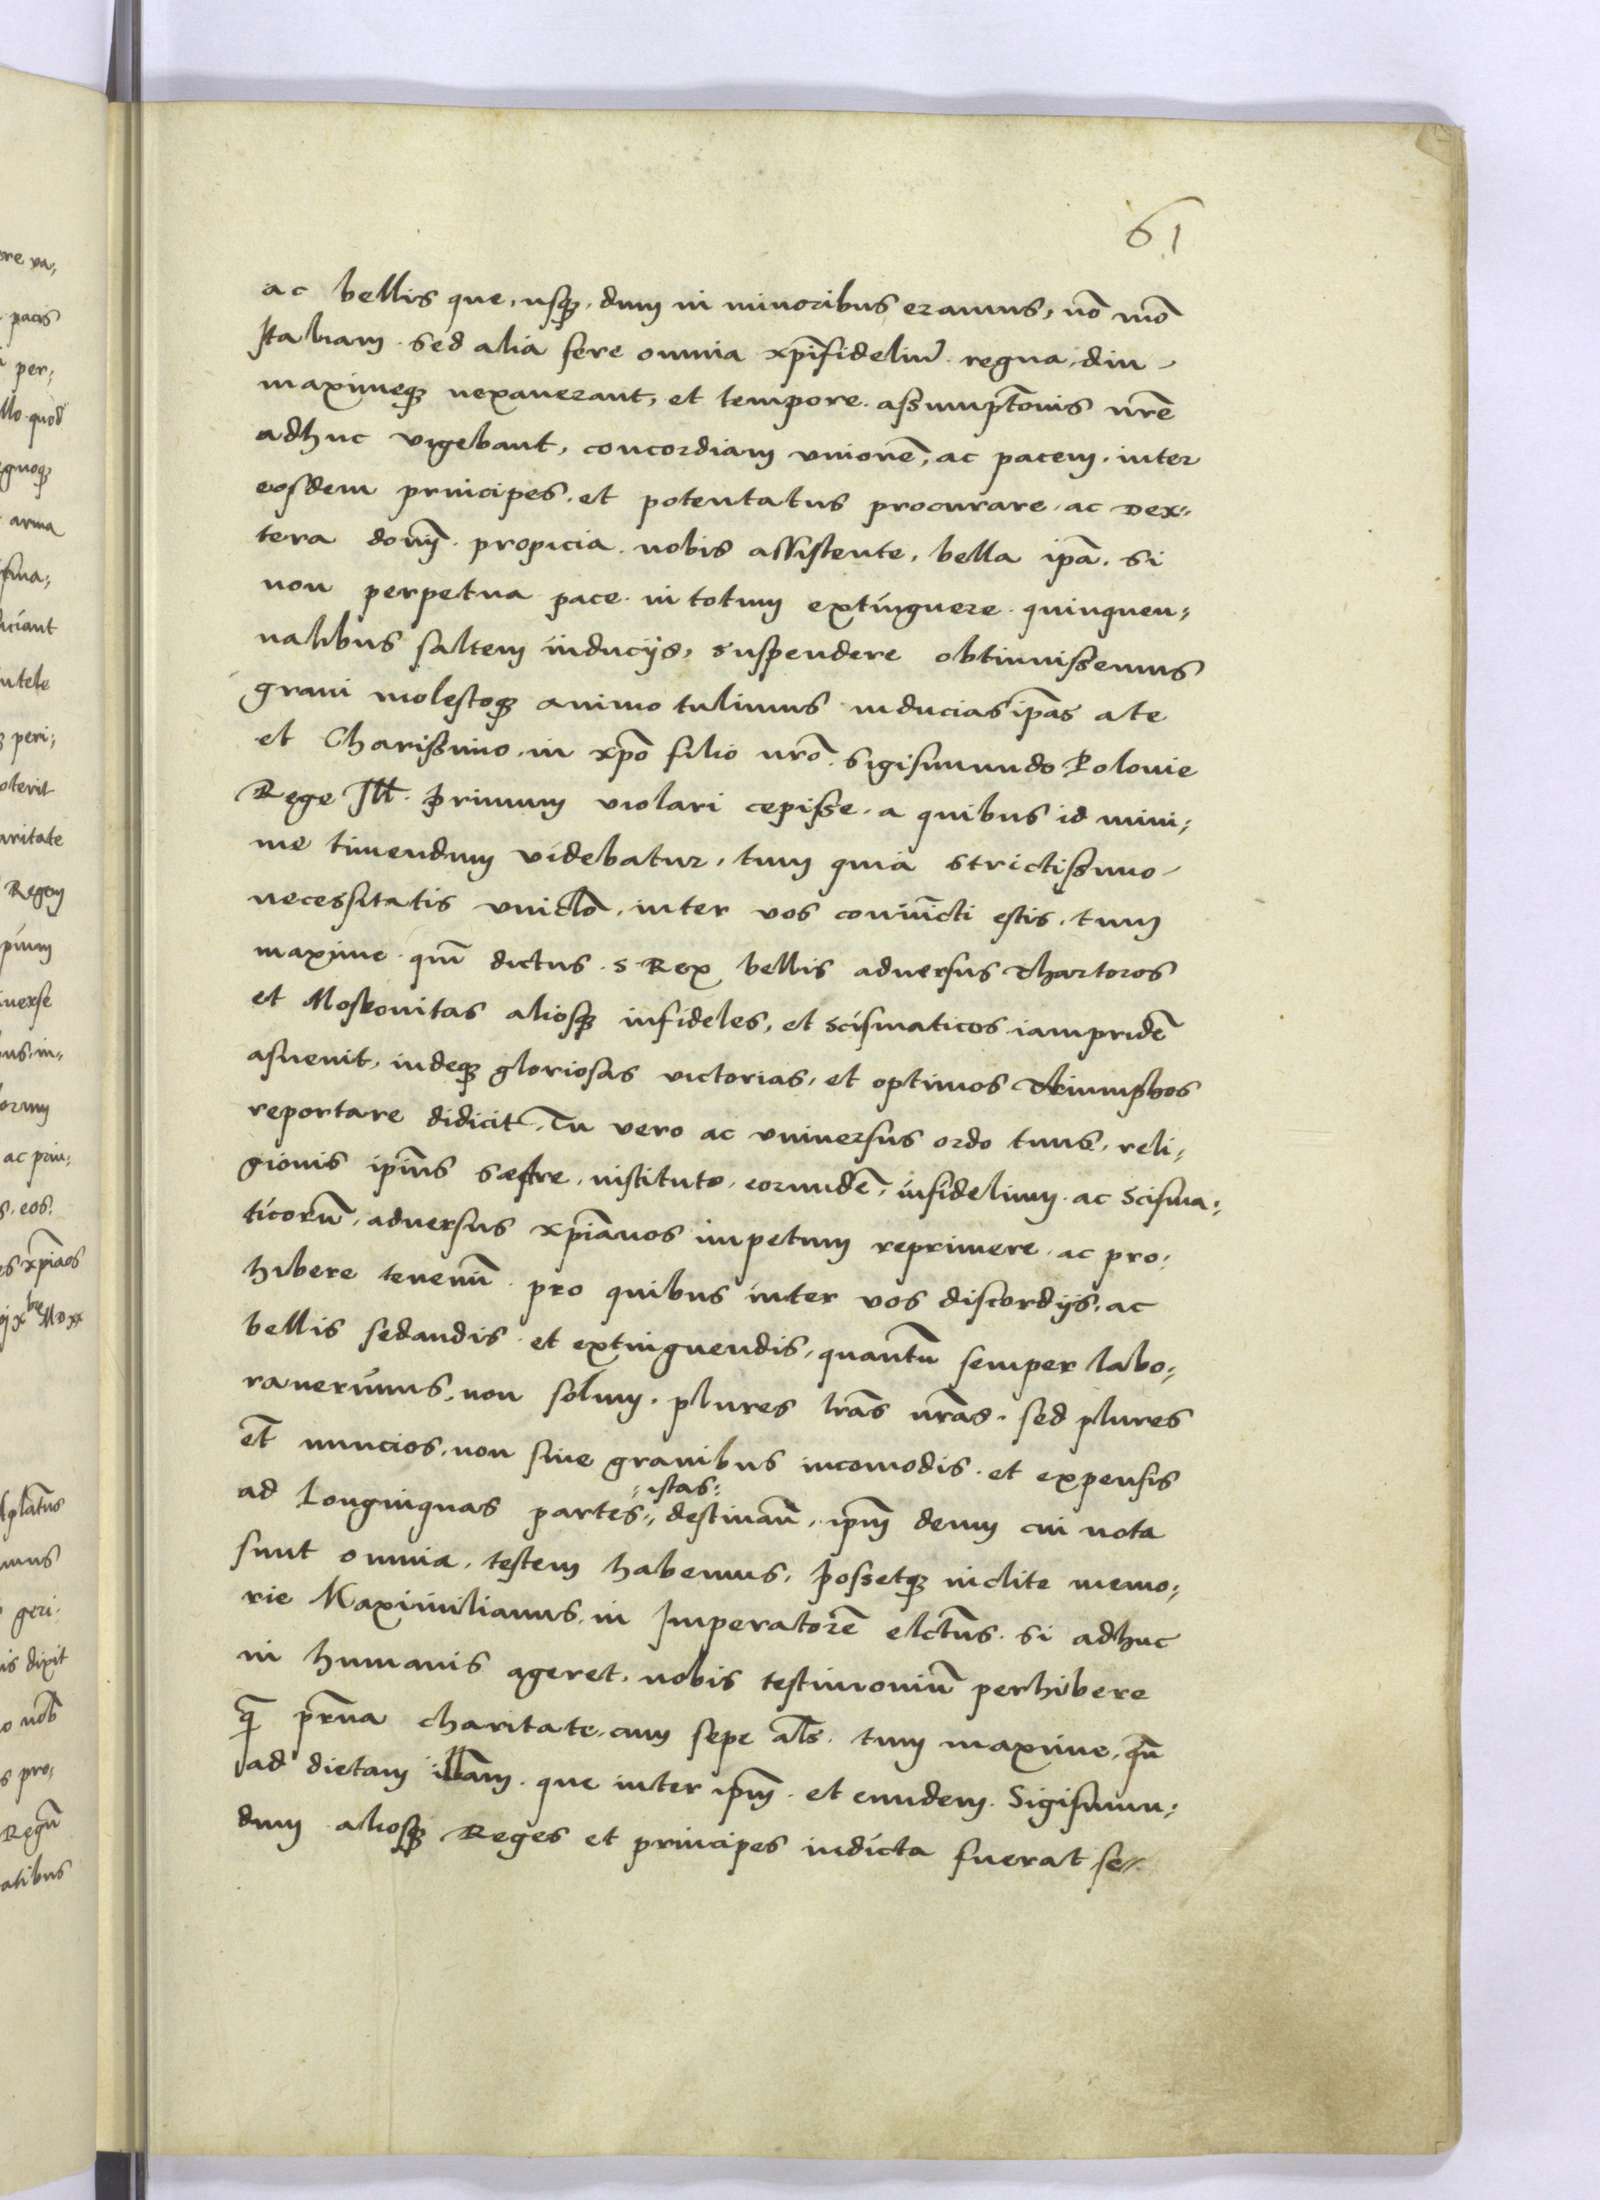 61
ac bellis que, usq3, dum in minoribus eramus, nō mō
Italiam. sed alia fere omnia xp̄ifideliū. regna, diu,
maximeq3 uexauerant, et tempore. assumpt̄onis nr̄e
adhuc vigebant, concordiam vnionē, ac pacem. inter
eosdem principes. et potentatus procurare. ac dex,,
tera domī. propicia. nobis assistente, bella ip̄a. si
non perpetua pace. in totum extinguere. quinquen,,
nalibus saltem induciis, suspendere obtinuissemus
graui molestoq3 animo tulimus inducias ip̄as a te
et Charissimo. in xp̄o filio nr̄o. Sigismundo Polonie
Rege Ill. primum violari cepisse. a quibus id mini,,
me timendum videbatur, tum quia strictissimo
necessitatis vniclō. inter vos coniūcti estis. tum
maxime. qm̄ dictus. S Rex bellis aduersus Thartoros
et Moskouitas aliosq3 infideles, et scismaticos iampridē
asueuit, indeq3 gloriosas victorias, et optimos triumphos
reportare didicit. Tu vero ac vniuersus ordo tuus, reli,,
gionis ip̄ius sacre. instituto. eorundē. infidelium. ac Scisma,,
ticorū. aduersus xp̄ianos impetum reprimere. ac pro,,
hibere tenemī. pro quibus inter vos discordijs, ac
bellis sedandis. et extinguendis, quantū semper labo,,
rauerimus, non solum. plures lr̄as nr̄as. sed plures
et̄ nuncios, non sine grauibus incomodis. et expensis
ad Longinquas partes,, istas: destinauī. ip̄m deum cui nota
sunt omnia, testem habemus, possetq3 inclite memo,,
rie Maximilianus. in Imperatorē elct̄us. si adhuc
in humanis ageret. nobis testimoniū perhibere
q̄ pr̄na charitate, cum sepe al̄s. tum maxime, qn̄
ad dietam illam. que inter ip̄m. et eundem. Sigismun,,
dum aliosq3 Reges et principes indicta fuerat se,,